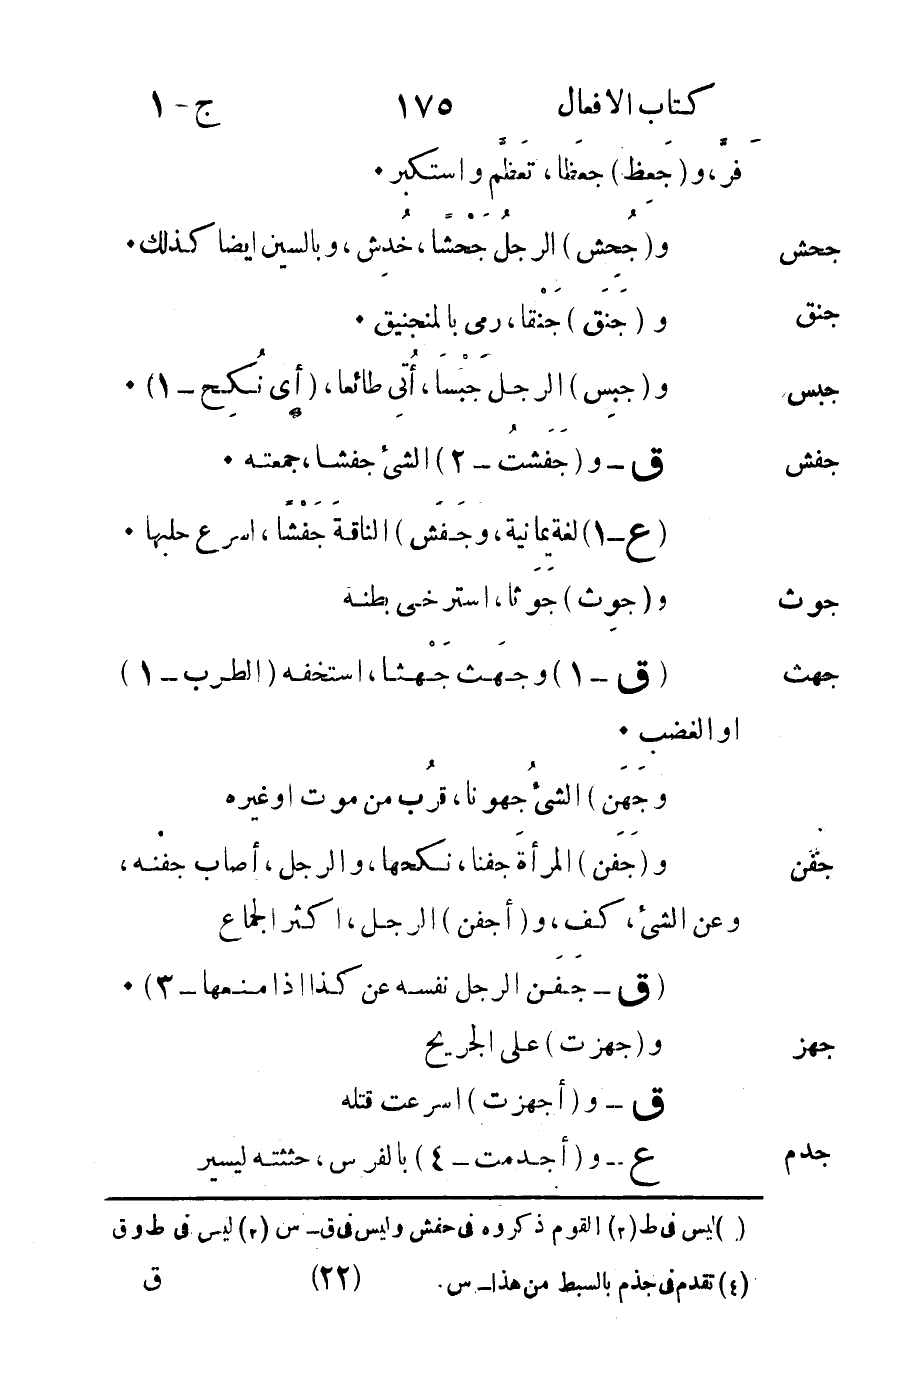 كتاب الافعال ١٧٥ ج - ١
فرَّ، و (جَعِظ) جعَظا، تَعَظَّم و استكبر ٠
جحش و (جُحِش) الرجلُ جَحْشًا، خُدِش، و بالسين ايضا كذلك ٠
جنق و (جَنَق) جَنْقا، رمى بالمنجنيق ٠
جبس و (جبِس) الرجل جَبْسَا، أُتِى طائعا، (أى نُكِح - ١) ٠
جفش ق - و (جَفَشتُ - ٢) الشئ جفشا، جمعته ٠
(ع - ١) لغة يمانية، و جَفَش) الناقةَ جَفْشًا، اسرع حلبها ٠
جوث و (جوِث) جَوَثا، استرخى بطنه
جهث (ق - ١) و جهَث جَهْثا، استخفه (الطرب - ١)
او الغضب ٠
و جَهَن) الشئُ جهونا، قرُب من موت او غيره
جفْن و (جَفَن) المرأةَ جفنا، نكحها، و الرجل، أصاب جفنه،
و عن الشئ، كف، و (أجفن) الرجل، اكثر الجماع
(ق - جَفَن الرجل نفسه عن كذا اذا منعها - ٣) ٠
جهز و (جهزت) على الجريح
ق - و (أجهزت) اسرعت قتله
جدم ع - و (أجدمت - ٤) بالفرس، حثثته ليسير
( ) ليس فى ط (٢) القوم ذكروه فى حفش وليس فى ق - س (٣) ليس فى ط و ق
(٤) تقدم فى جذم بالسبط من هذا - س.
(٢٢) ق